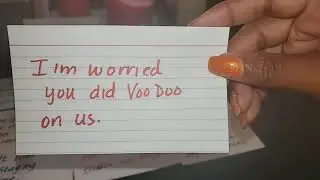 I im worried
you did VooDoo
on us.